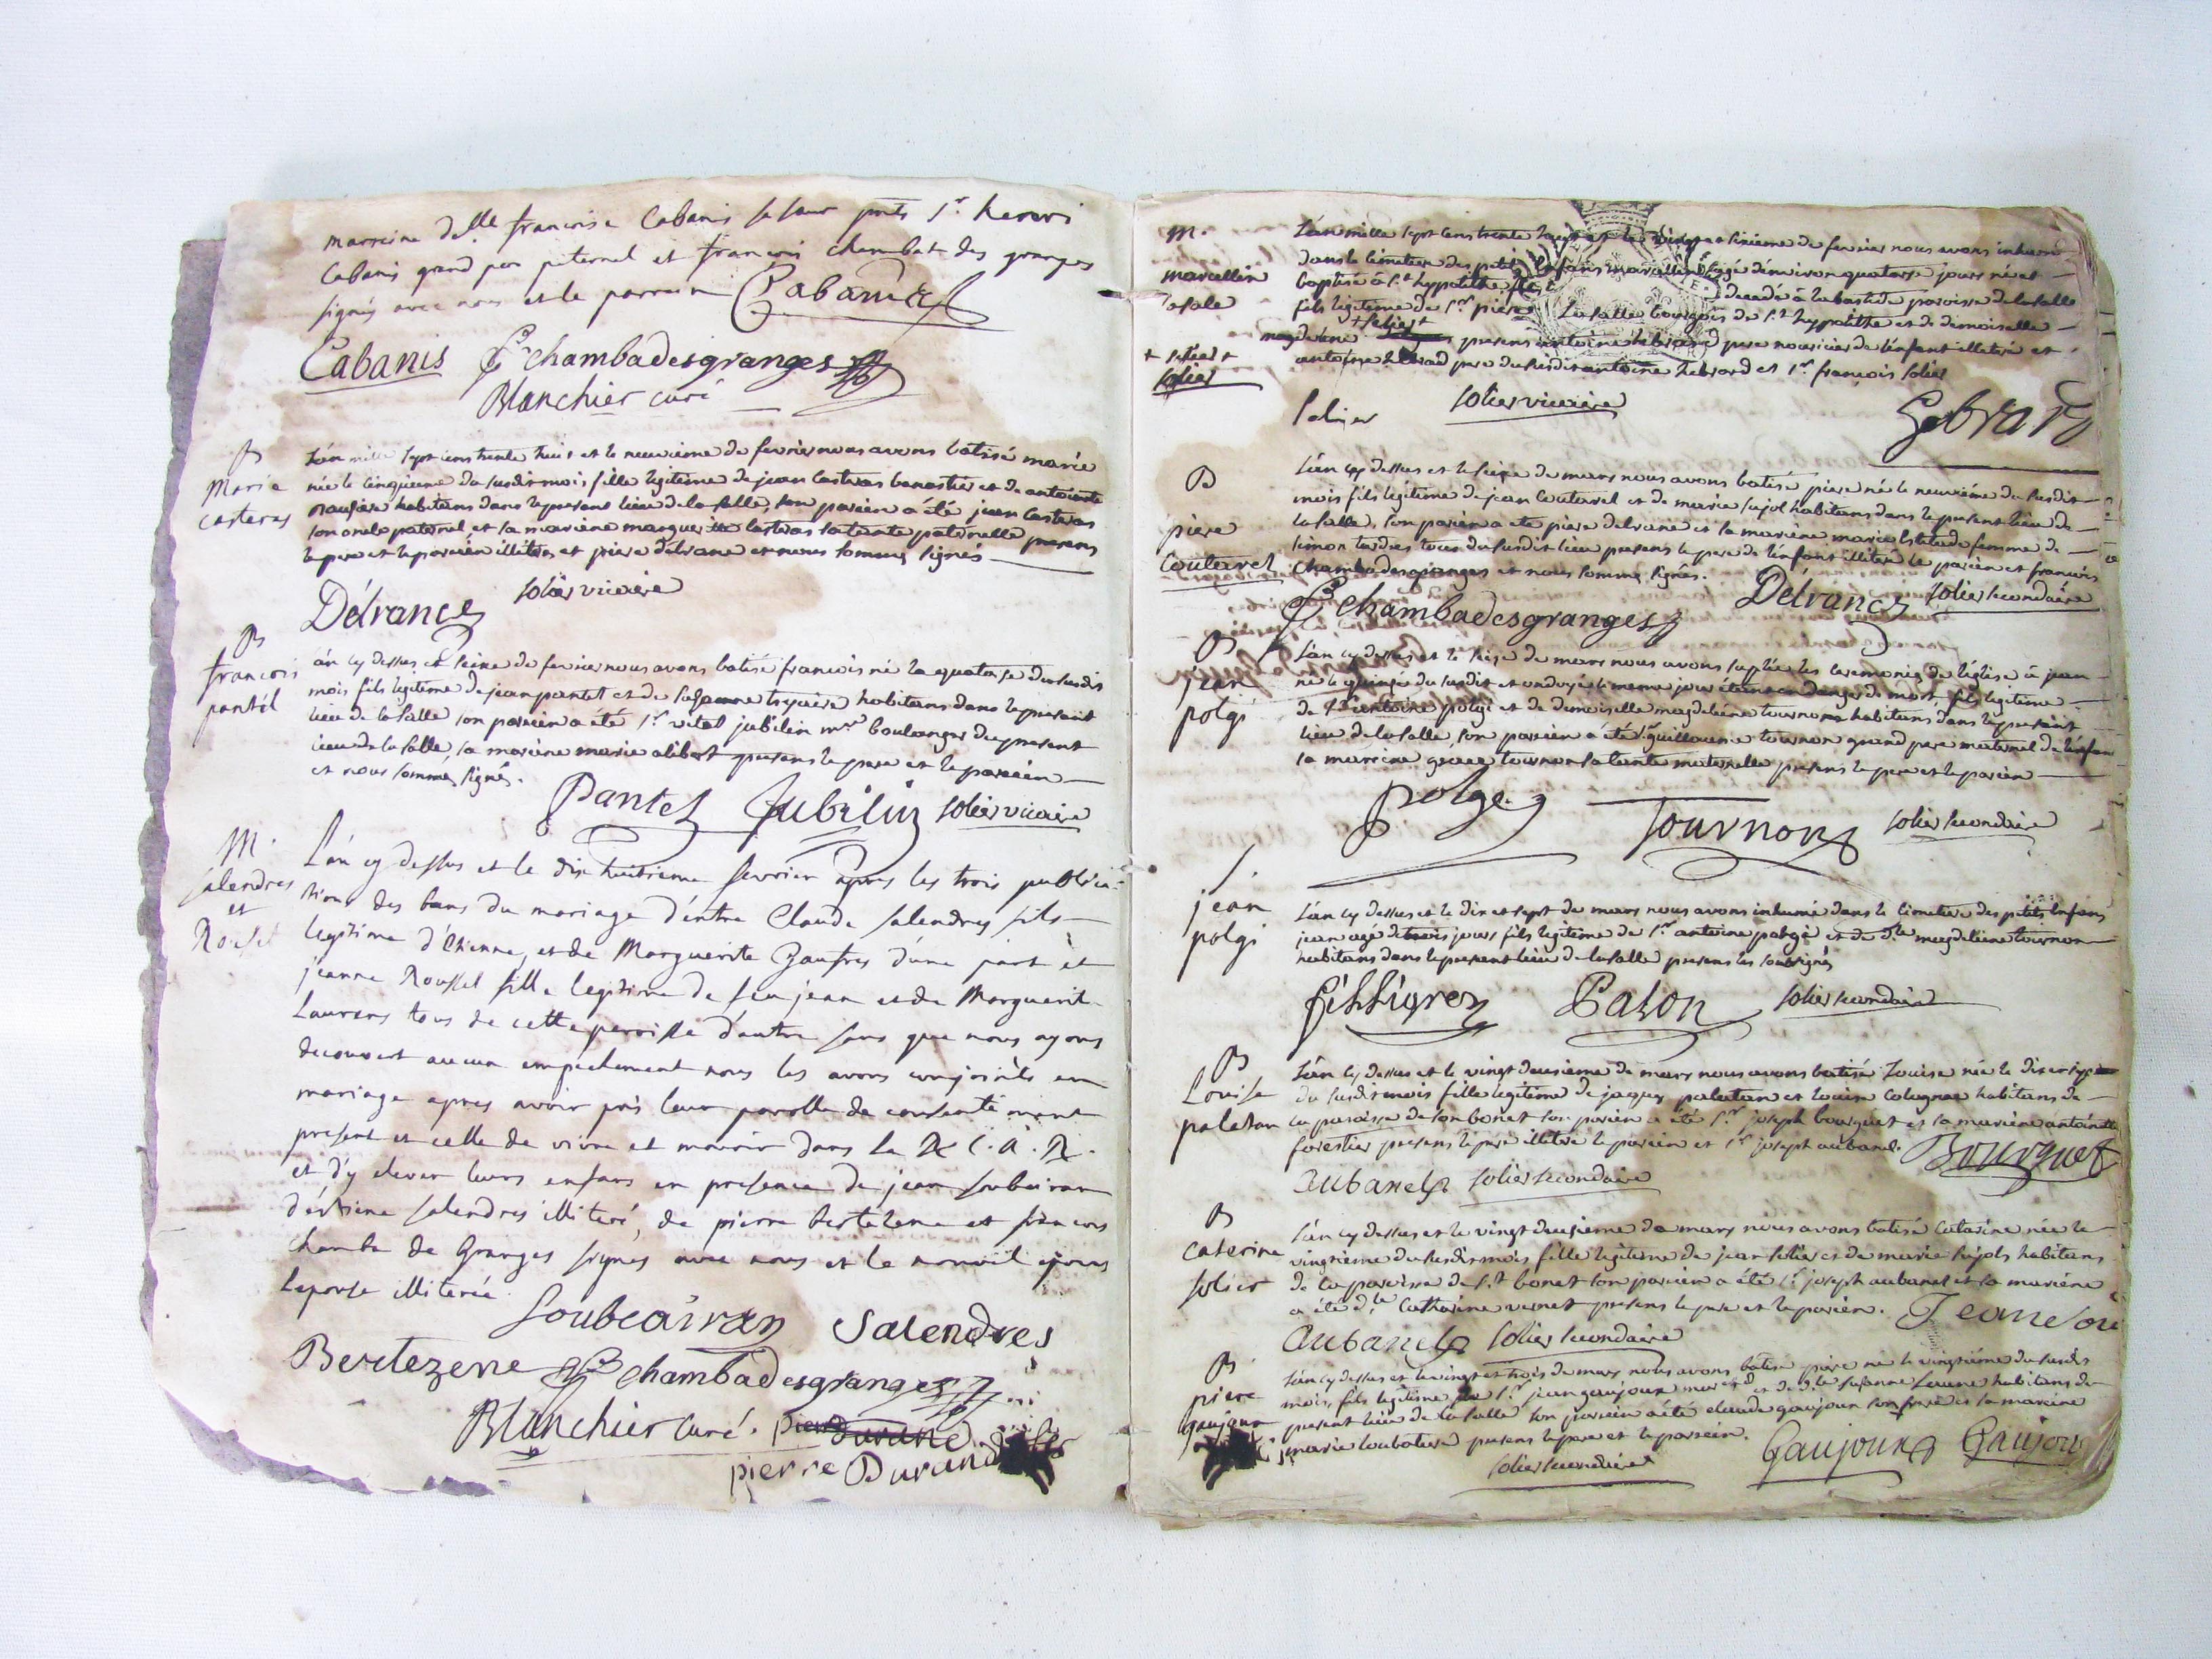 marreine d.lle francoise Cabanis sa sœur prets s.r henri
Cabanis grand pere paternel et francois chambat des granges
signés avec nous et le parrein Cabanis
Cabanis chambadesgranges
Blanchier curé
B
Marie
casteras
L'an mille sept cens trente huit et le neuvieme de fevrier nous avons batisé marie
née le cinquieme du susdit mois fille legitime de jean castras et de antoinette
habitans dans le present lieu de la salle, son parien a été jean castras
son oncle paternel et sa mariene margueritte castras sa tante paternelle presens
le pere et le parien illiteres et piere delrance et nous sommes signés
Délrance solier vicaire
B
francois
pantél
L'an cy dessus et seize de fevrier nous avons batisé francois né le quatorse du susdit
mois fils legitime de jean pantel et de habitans dans le present
lieu de la salle son parien a été s.r vital jubilin boulanger du present
lieu de la salle sa mariene marie alibert presens le pere et le parien
et nous sommes signés.
Pantel Jubilin solier vicaire
M.
salendres
et
Roussel
L'an cy dessus et le dix huitieme fevrier apres les trois publica-
tions des bans du mariage d'entre Claude salendres fils
legitime d'Etienne, et de Marguerite Gautres d'une part et
jeanne Roussel fille legitime de feu jean et de Marguerite
Laurens tous de cette parroisse d'autre sans que nous ayons
decouvert aucun empechement nous les avons conjoints en
mariage apres avoir pris leur parolle de consentement
present et celle de vivre et mourir dans la R. C. A. R.
et d'y elever leurs enfans en presence de jean soubeiran
d'estiene salendres illiteré, de pierre bertezene et francois
chamba de Granges signés avec nous et le nouvel epoux
l'epouse illiterée.
Soubeairan Salendres
Bertezene chambadesgranges
Blanchier curé. pierre Durand
pierre Durand
m.
marcellin
lasale
L'an mille sept cens trente huit et le vingt et sixieme de fevrier nous avons inhumé
dans le cimetiere des petits enfans marcellin agé d'environ quatorse jours né et
baptisé à s.t hyppolithe decedé à la bastide paroisse de la salle
fils legitime de s.r piere La salle bourgois de s.t hyppolithe et de demoiselle
magdelene presens antoine hebrard pere nouricier de l'enfant illiteré et
antoine hebrard pere du susdit antoine hebrard et s.r françois solier
solier
solier solier vicaire Gebrard
B
piere
Couterel
L'an cy dessus et le seize de mars nous avons batisé piere né le neuvieme du susdit
mois fils legitime de jean couterel et de marie pujol habitans dans le present lieu de
la salle, son parien a été piere delrance et sa mariene marie femme de
simon tous du susdit lieu presens le pere de l'enfant illiteré le parien et francois
chambadesgranges et nous sommes signés. Délrance solier secondaire
chambadesgranges
B
jean
polgi
L'an cy dessus et le seise de mars nous avons suplée les ceremonies de l'église à jean
né le quinze du susdit et ondoyé le meme jour étant en danger de mort, fils legitime
de s.r antoine polgi et de demoiselle magdeleine tournon habitans dans le present
lieu de la salle, son parien a été s.r guillaume tournon grand pere maternel de l'enfan
sa mariene tournon sa tante maternelle presens le pere et le parien
polge Tournon solier secondaire
S.
jean
polgi
L'an cy dessus et le dix et sept de mars nous avons inhumé dans le cimetiere des petits enfans
jean agé de trois jours fils legitime de s.r antoine polgi et de d.le magdeleine tournon
habitans dans le present lieu de la salle presens les soussignés
Paton solier secondaire
B
Louise
paletan
L'an cy dessus et le vingt deuxieme de mars nous avons batisé Louise née le dix et sept
du susdit mois fille legitime de jaques paletan et louise habitans de
la paroisse de son bonet son parien a été s.r joseph bourguet et sa mariene antoinette
forestier presens le pere illiteré le parien et s.r joseph aubanel. Bourguet
Aubanel solier secondaire
B
caterine
solier
L'an cy dessus et le vingt deuxieme de mars nous avons batisé Catarine née le
vingtieme du susdit mois fille legitime de jean solier et de marie pujols habitans
de la paroisse de s.t bonet son parien a été s.r joseph aubanel et sa mariene
a été d.le Catharine vernet presens le pere et le parien. Jean sol
Aubanel solier secondaire
B
piere
Gaujoux
L'an cy dessus et le vingt et trois de mars nous avons batisé piere né le vingtieme du susdit
mois, fils legitime de s.r jean gaujoux et de d.le susanne Leune habitans de
present lieu de la salle son parien a été claude gaujoux son frere et sa mareine
marie soubatiere presens le pere et le parrein. Gaujoux Gaujou
solier secondaire